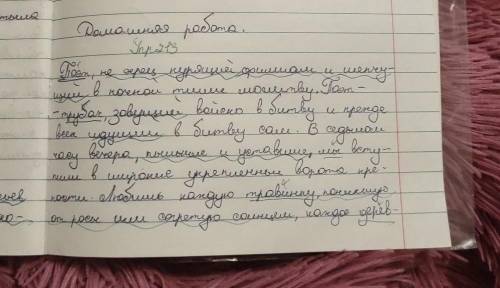 тыла
Домашняя работа.
Упр 213
Поэт, не жрец курящий фимиам и шепчу-
щий в ночной тиши молитву. Поэт-
-трубач, зовущий войско в битву и прежде
всех идущий в битву сам. В седьмом
часу вечера, пыльные и уставшие, мы всту-
пили в широкие укрепленные ворота кре-
пости. Любишь каждую травинку, поникшую
от росы или согретую солнцем, каждое дерев-